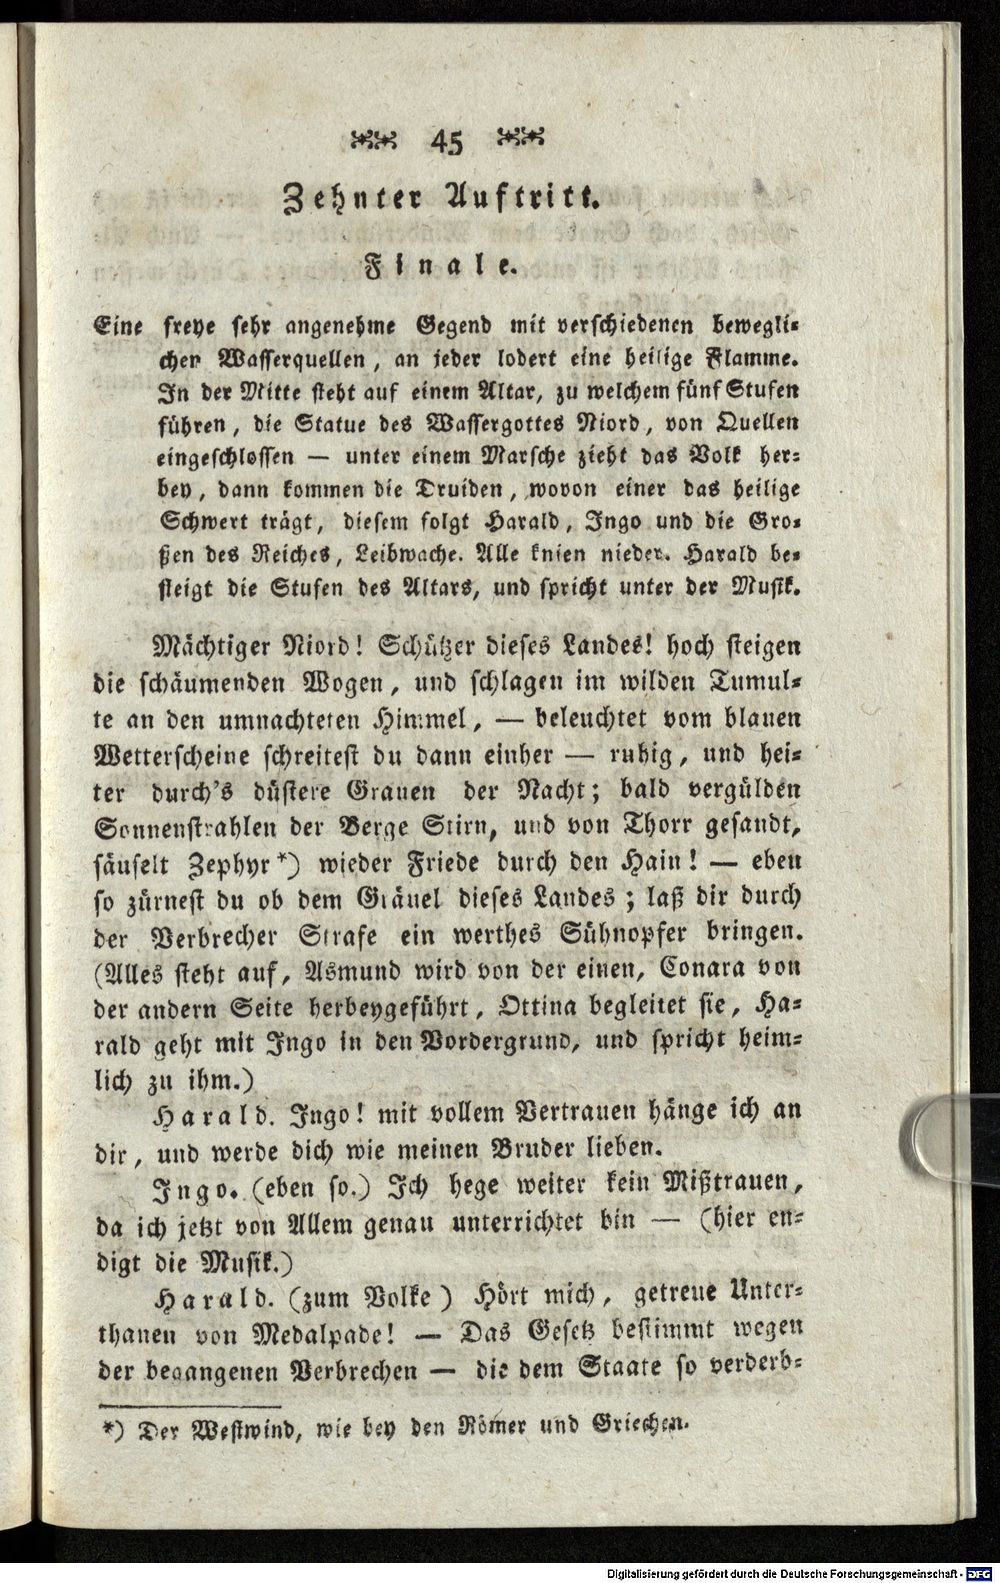 45
Zehnter Auftritt.
Finale.
Eine freye sehr angenehme Gegend mit verschiedenen bewegli-
chen Wasserquellen, an jeder lodert eine heilige Flamme.
In der Mitte steht auf einem Altar, zu welchem fünf Stufen
führen, die Statue des Wassergottes Niord, von Quellen
eingeschlossen — unter einem Marsche zieht das Volk her-
bey, dann kommen die Druiden, wovon einer das heilige
Schwert trägt, diesem folgt Harald, Ingo und die Gro-
ßen des Reiches, Leibwache. Alle knien nieder. Harald be-
steigt die Stufen des Altars, und spricht unter der Musik.
Mächtiger Niord! Schützer dieses Landes! hoch steigen
die schäumenden Wogen, und schlagen im wilden Tumul-
te an den umnachteten Himmel, — beleuchtet vom blauen
Wetterscheine schreitest du dann einher — ruhig, und hei-
ter durch's düstere Grauen der Nacht; bald vergülden
Sonnenstrahlen der Berge Stirn, und von Thorr gesandt,
säuselt Zephyr*) wieder Friede durch den Hain! — eben
so zürnest du ob dem Gräuel dieses Landes; laß dir durch
der Verbrecher Strafe ein werthes Sühnopfer bringen.
(Alles steht auf, Asmund wird von der einen, Conara von
der andern Seite herbeygeführt, Ottina begleitet sie, Ha-
rald geht mit Ingo in den Vordergrund, und spricht heim-
lich zu ihm.)
Harald. Ingo! mit vollem Vertrauen hänge ich an
dir, und werde dich wie meinen Bruder lieben.
Ingo. (eben so.) Ich hege weiter kein Mißtrauen,
da ich jetzt von Allem genau unterrichtet bin — (hier en-
digt die Musik.)
Harald. (zum Volke) Hört mich, getreue Unter-
thanen von Medalpade! — Das Gesetz bestimmt wegen
der begangenen Verbrechen — die dem Staate so verderb-
*) Der Westwind, wie bey den Römer und Griechen.
Digitalisierung gefördert durch die Deutsche Forschungsgemeinschaft - DFG